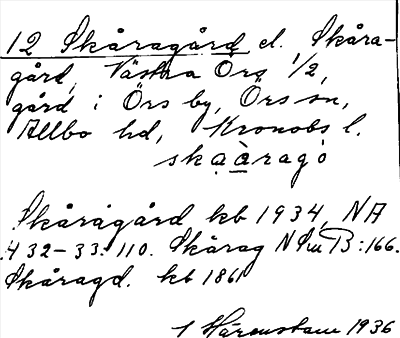 12 Skåragård el. Skåra-
gård, Västra Örs 1/2,
gård i Örs by, Örs sn,
Allbo hd, Kronobs l.
skạ̊ragọ
Skåragård kb 1934, NA
432-33: 110. Skårag NSm B:166.
Skåragd. kb 1861
Härenstam 1936